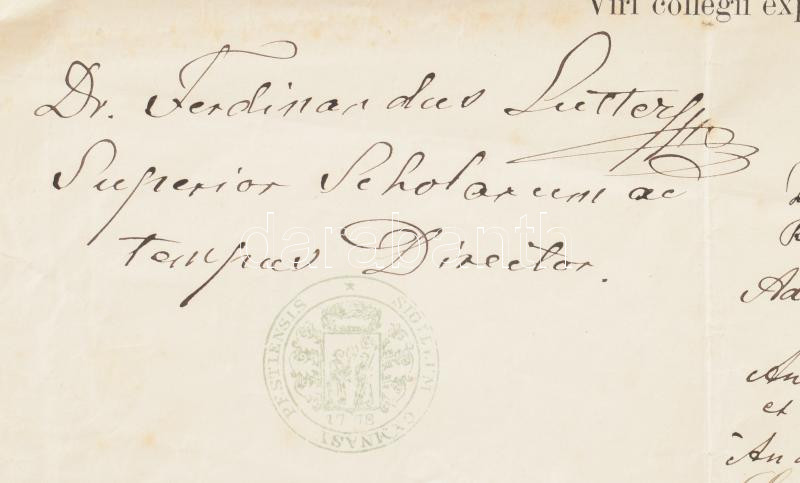 Viri collegii exp
Dr. Ferdinandus Lutter
Superior Scholarum ac
tempus Director.
Ad
An
et
An
darabanth
SIGILLUM GYMNASY PESTIENSIS
1778